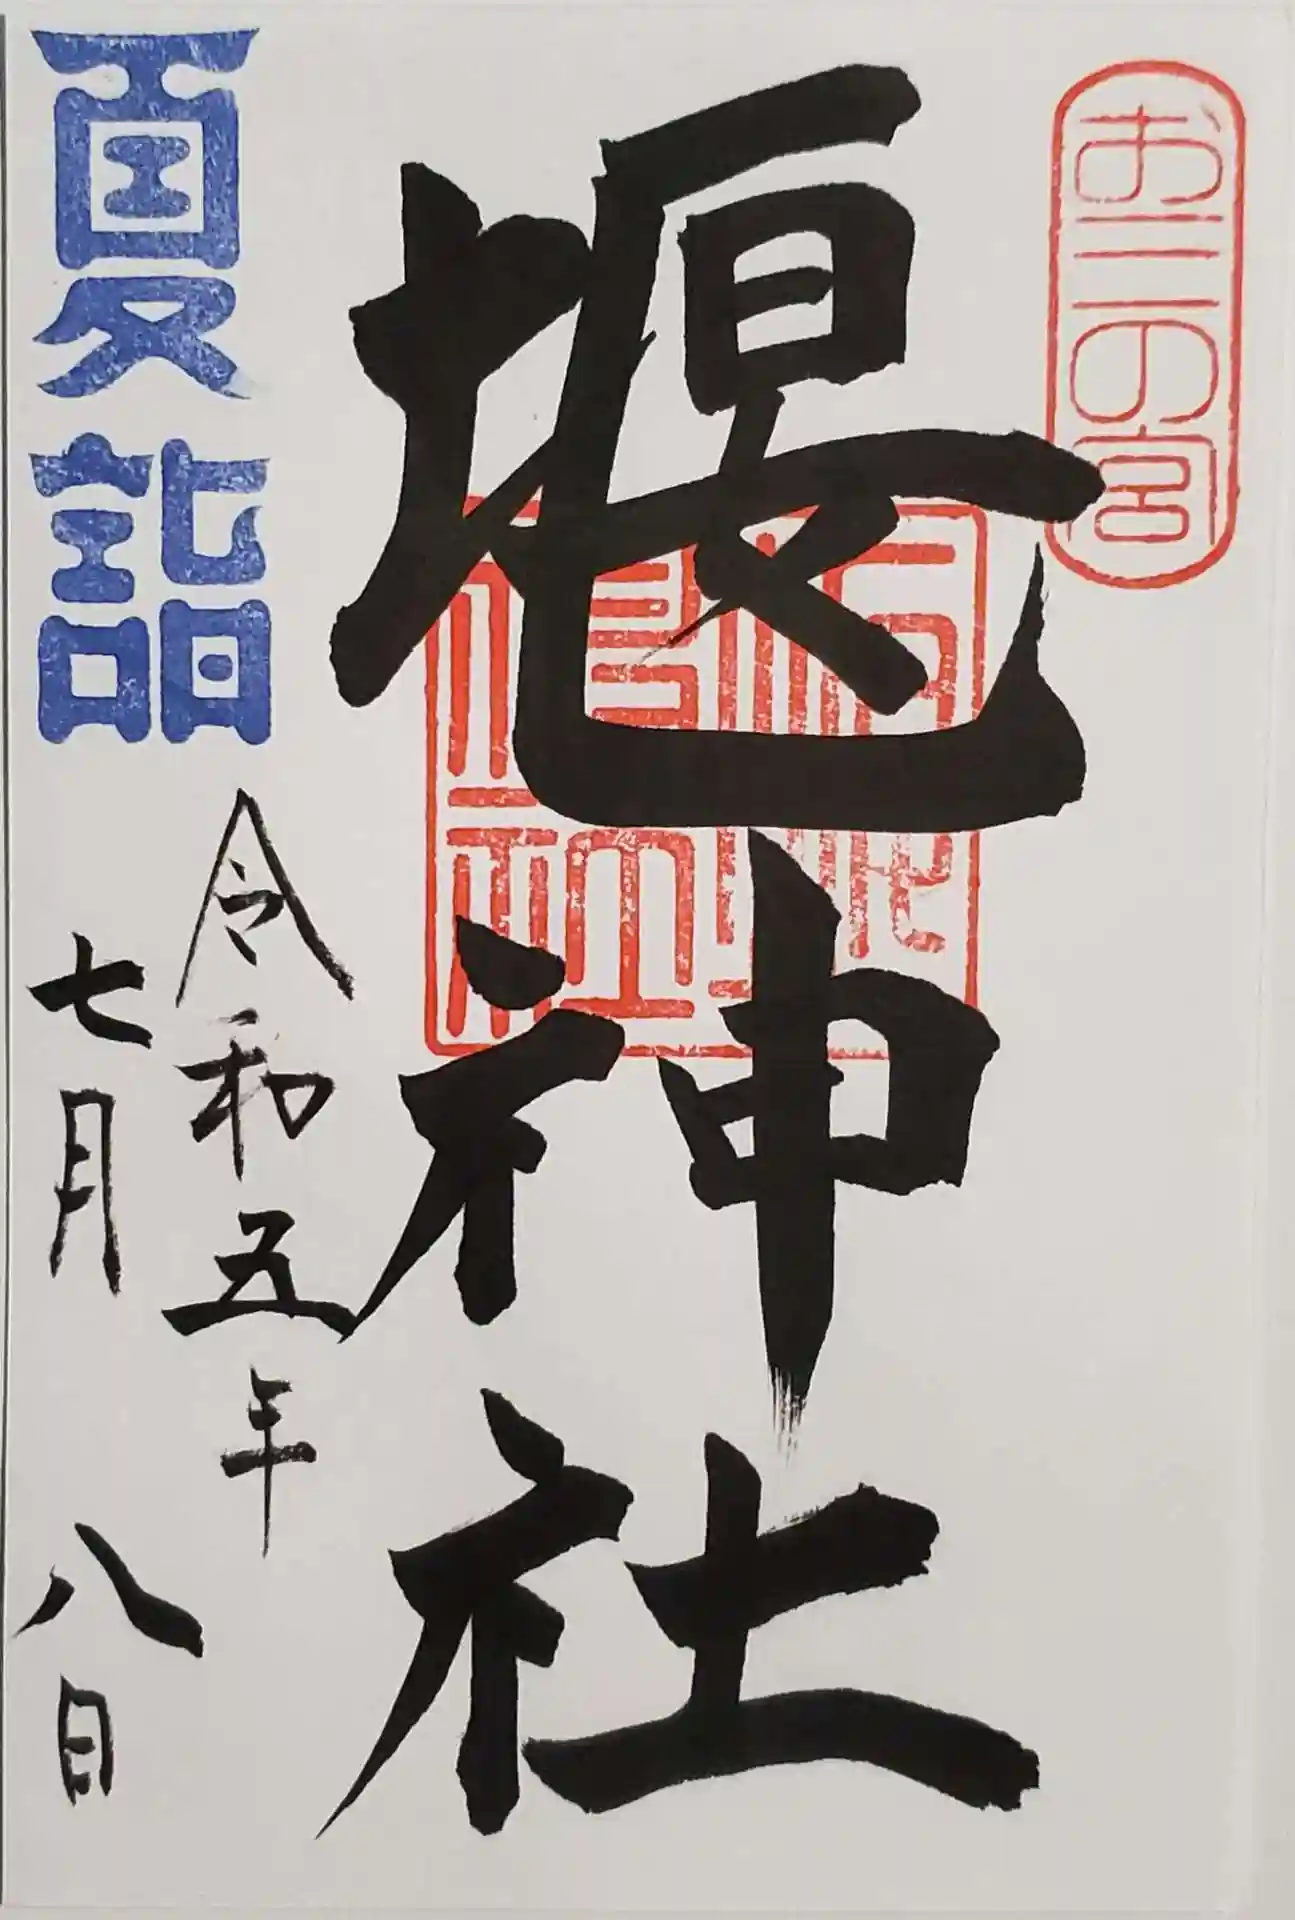 お三の宮
堰神社
夏詣
令和五年
七月八日